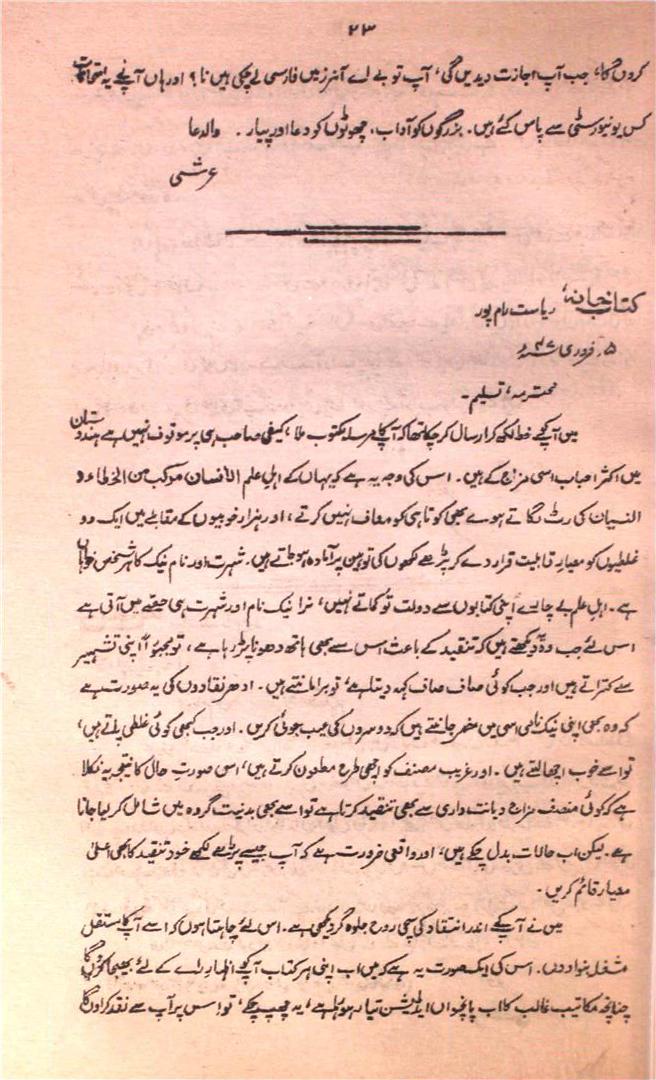 ۲۳
کروں گا، جب آپ اجازت دیدیں گی، آپ تو بی اے آنرز میں فارسی لے چکی ہیں نا؟ اور ہاں آپ نے یہ امتحانات
کس یونیورسٹی سے پاس کئے ہیں۔ بزرگوں کو آداب، چھوٹوں کو دعا اور پیار۔ والدعا
عرشی
کتاب خانہ، ریاست رام پور
۵؍ فروری ۴۷ء
محترمہ، تسلیم۔
میں آپ کو خط لکھ کر ارسال کر چکا تھا کہ آپ کا مرسلہ مکتوب ملا، کیفی صاحب ہی پر موقوف نہیں ہے ہندوستان
میں اکثر احباب اسی مزاج کے ہیں۔ اس کی وجہ یہ ہے کہ یہاں کے اہلِ علم الانسان مرکب من الخطاء و
النسیان کی رٹ لگاتے ہوے بھی کوتاہی کو معاف نہیں کرتے، اور ہزار خوبیوں کے مقابلے میں ایک دو
غلطیوں کو معیارِ قابلیت قرار دے کر پڑھے لکھوں کی توہین پر آمادہ ہو جاتے ہیں۔ شہرت اور نام نیک کا ہر شخص خواہاں
ہے۔ اہلِ علم بے چارے اپنی کتابوں سے دولت تو کماتے نہیں، نرا نیک نام اور شہرت ہی حصے میں آتی ہے
اس لئے جب وہ دیکھتے ہیں کہ تنقید کے باعث اس سے بھی ہاتھ دھونا پڑ رہا ہے، تو مجبوراً اپنی تشہیر
سے کتراتے ہیں اور جب کوئی صاف صاف کہہ دیتا ہے، تو برا مانتے ہیں۔ ادھر نقادوں کی یہ صورت ہے
کہ وہ بھی اپنی نیک نامی اسی میں مضمر جانتے ہیں کہ دوسروں کی عیب جوئی کریں۔ اور جب کبھی کوئی غلطی پاتے ہیں،
تو اسے خوب اچھالتے ہیں۔ اور غریب مصنف کو اچھی طرح مطعون کرتے ہیں، اس صورتِ حال کا نتیجہ یہ نکلا
ہے کہ کوئی منصف مزاج دیانت داری سے بھی تنقید کرتا ہے تو اسے بھی بدنیت گروہ میں شامل کر لیا جاتا
ہے۔ لیکن اب حالات بدل چکے ہیں، اور واقعی ضرورت ہے کہ آپ جیسے پڑھے لکھے خود تنقید کا بھی اعلیٰ
معیار قائم کریں۔
میں نے آپ کے اندر انتقاد کی سچی روح جلوہ گر دیکھی ہے۔ اس لئے چاہتا ہوں کہ اسے آپ کا مستقل
مشغلہ بنوا دوں۔ اس کی ایک صورت یہ ہے کہ میں اب اپنی ہر کتاب آپ کو اظہارِ رائے کے لئے بھیجا کروں گا
چنانچہ مکاتیب غالب کا اب پانچواں ایڈیشن تیار ہو رہا ہے، یہ چھپ چکے، تو اس پر آپ سے نقد کراوں گا